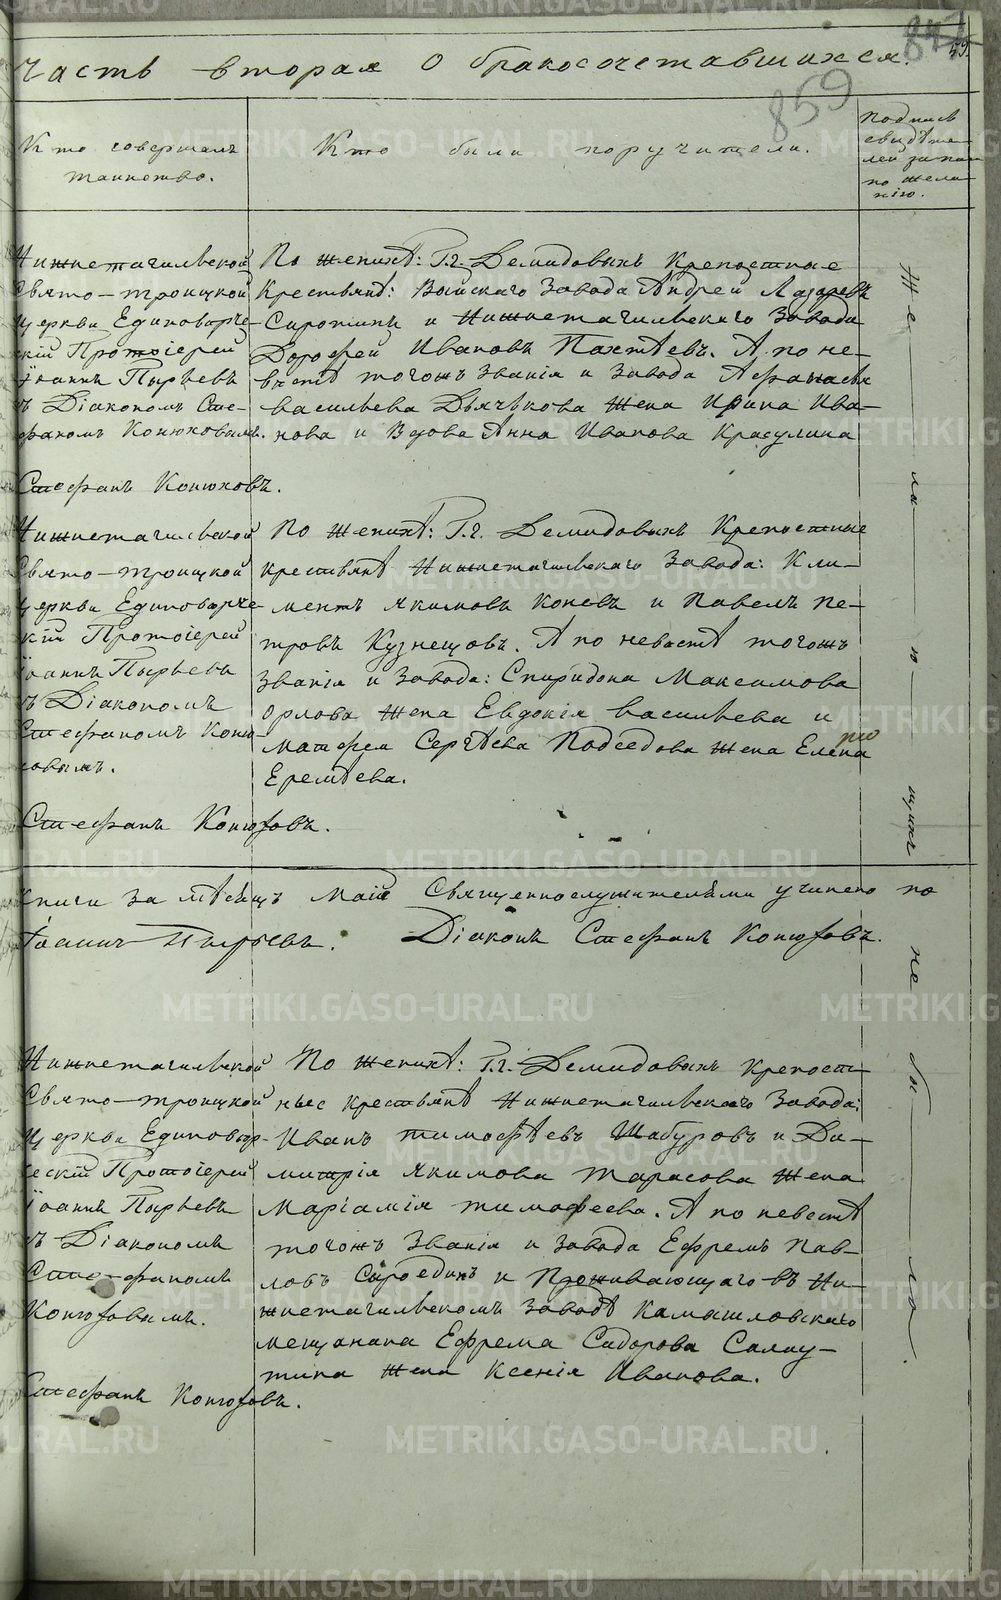 Часть вторая о бракосочетавшихся.
859
59.
Кто совершалъ
таинство.
Кто были поручители.
Подпись
свидѣте-
лей записи
по жела-
нію.
Нижнетагильской
Свято-Троицкой
Церкви Единовѣрче-
скій Протоіерей
Іоаннъ Пырьевъ
съ Діакономъ Сте-
фаномъ Конюховымъ.
Стефанъ Конюховъ.
По женихѣ: Г.г. Демидовыхъ Крепостные
Крестьянѣ: Выйскаго Завода Андрей Лазаревъ
Сиротинъ и Нижнетагильскаго Завода
Дорофей Ивановъ Пахтѣевъ. А по не-
вѣстѣ тогожъ Званія и Завода Афанасья
Васильева Дьячькова Жена Ирина Ива-
нова и Вдова Анна Иванова Красулина
Нижнетагильской
Свято-Троицкой
Церкви Единовѣрче-
скій Протоіерей
Іоаннъ Пырьевъ
съ Діакономъ
Стефаномъ Коню-
ховымъ.
Стефанъ Конюховъ.
По женихѣ: Г.г. Демидовыхъ Крепостные
крестьянѣ Нижнетагильскаго Завода: Кли-
ментъ Якимовъ Коневъ и Павелъ Пе-
тровъ Кузнецовъ. А по невѣстѣ тогожъ
Званія и Завода: Спиридона Максимова
Орлова Жена Евдокія Васильева и
Матфея Сергѣева Подседова жена Елена
Еремѣева.
книги за мѣсяцъ Маій Священнослужителями учинено по
Іоаннъ Пырьевъ. Діаконъ Стефанъ Конюховъ.
Нижнетагильской
Свято-Троицкой
Церкви Единовѣр-
ческій Протоіерей
Іоаннъ Пырьевъ
съ Діакономъ
Стефаномъ
Конюховымъ.
Стефанъ Конюховъ.
По женихѣ: Г.г. Демидовыхъ крепост-
ные крестьянѣ Нижнетагильскаго Завода:
Иванъ Тимофѣевъ Шабуровъ и Ди-
митрія Якимова Тарасова Жена
Маріамія Тимофеева. А по невестѣ
тогожъ Званія и Завода Ефремъ Пав-
ловъ Сыроединъ и Проживающаго въ Ни-
жнетагильскомъ Заводѣ Камышловскаго
мещанина Ефрема Сидорова Салау-
тина Жена Ксенія Иванова.
Же
ла
ю
щихъ
не
бы
ло.
METRIKI.GASO-URAL.RU